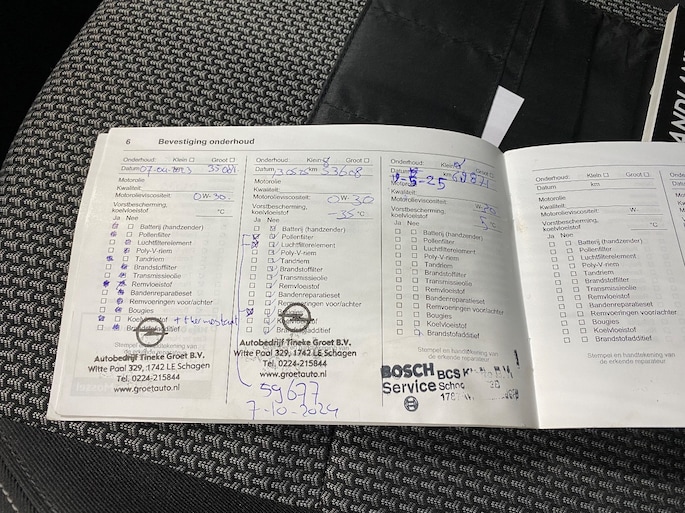 6 Bevestiging onderhoud
Onderhoud: Klein Groot
Datum 07-04-2023 35081
Motorolie
Kwaliteit:
Motorolieviscositeit: 0 W-30
Vorstbescherming,
koelvloeistof °C
Ja Nee
Batterij (handzender)
Pollenfilter
Luchtfilterelement
Poly-V-riem
Tandriem
Brandstoffilter
Transmissieolie
Remvloeistof
Bandenreparatieset
Remvoeringen voor/achter
Bougies
Koelvloeistof + thermostaat
Brandstofadditief
Stempel en handtekening van
de erkende reparateur
Autobedrijf Tineke Groet B.V.
Witte Paal 329, 1742 LE Schagen
Tel. 0224-215844
www.groetauto.nl
Onderhoud: Klein Groot
Datum km 53608
Motorolie
Kwaliteit:
Motorolieviscositeit: 0 W-30
Vorstbescherming,
koelvloeistof -35 °C
Ja Nee
Batterij (handzender)
Pollenfilter
Luchtfilterelement
Poly-V-riem
Tandriem
Brandstoffilter
Transmissieolie
Remvloeistof
Bandenreparatieset
Remvoeringen voor/achter
Bougies
Brandstofadditief
Autobedrijf Tineke Groet B.V.
Witte Paal 329, 1742 LE Schagen
Tel. 0224-215844
www.groetauto.nl
59677
7-10-2024
Onderhoud: Klein Groot
Datum -25 km
Motorolie
Kwaliteit:
Motorolieviscositeit: W-30
Vorstbescherming,
koelvloeistof °C
Ja Nee
Batterij (handzender)
Pollenfilter
Luchtfilterelement
Poly-V-riem
Tandriem
Brandstoffilter
Transmissieolie
Remvloeistof
Bandenreparatieset
Remvoeringen voor/achter
Bougies
Koelvloeistof
Brandstofadditief
Stempel en handtekening van
de erkende reparateur
BOSCH BCS
Service
Onderhoud: Klein Groot
Datum km
Motorolie
Kwaliteit:
Motorolieviscositeit: W
Vorstbescherming,
koelvloeistof °C
Ja Nee
Batterij (handzender)
Pollenfilter
Luchtfilterelement
Poly-V-riem
Tandriem
Brandstoffilter
Transmissieolie
Remvloeistof
Bandenreparatieset
Remvoeringen voor/achter
Bougies
Koelvloeistof
Brandstofadditief
Stempel en handtekening van
de erkende reparateur